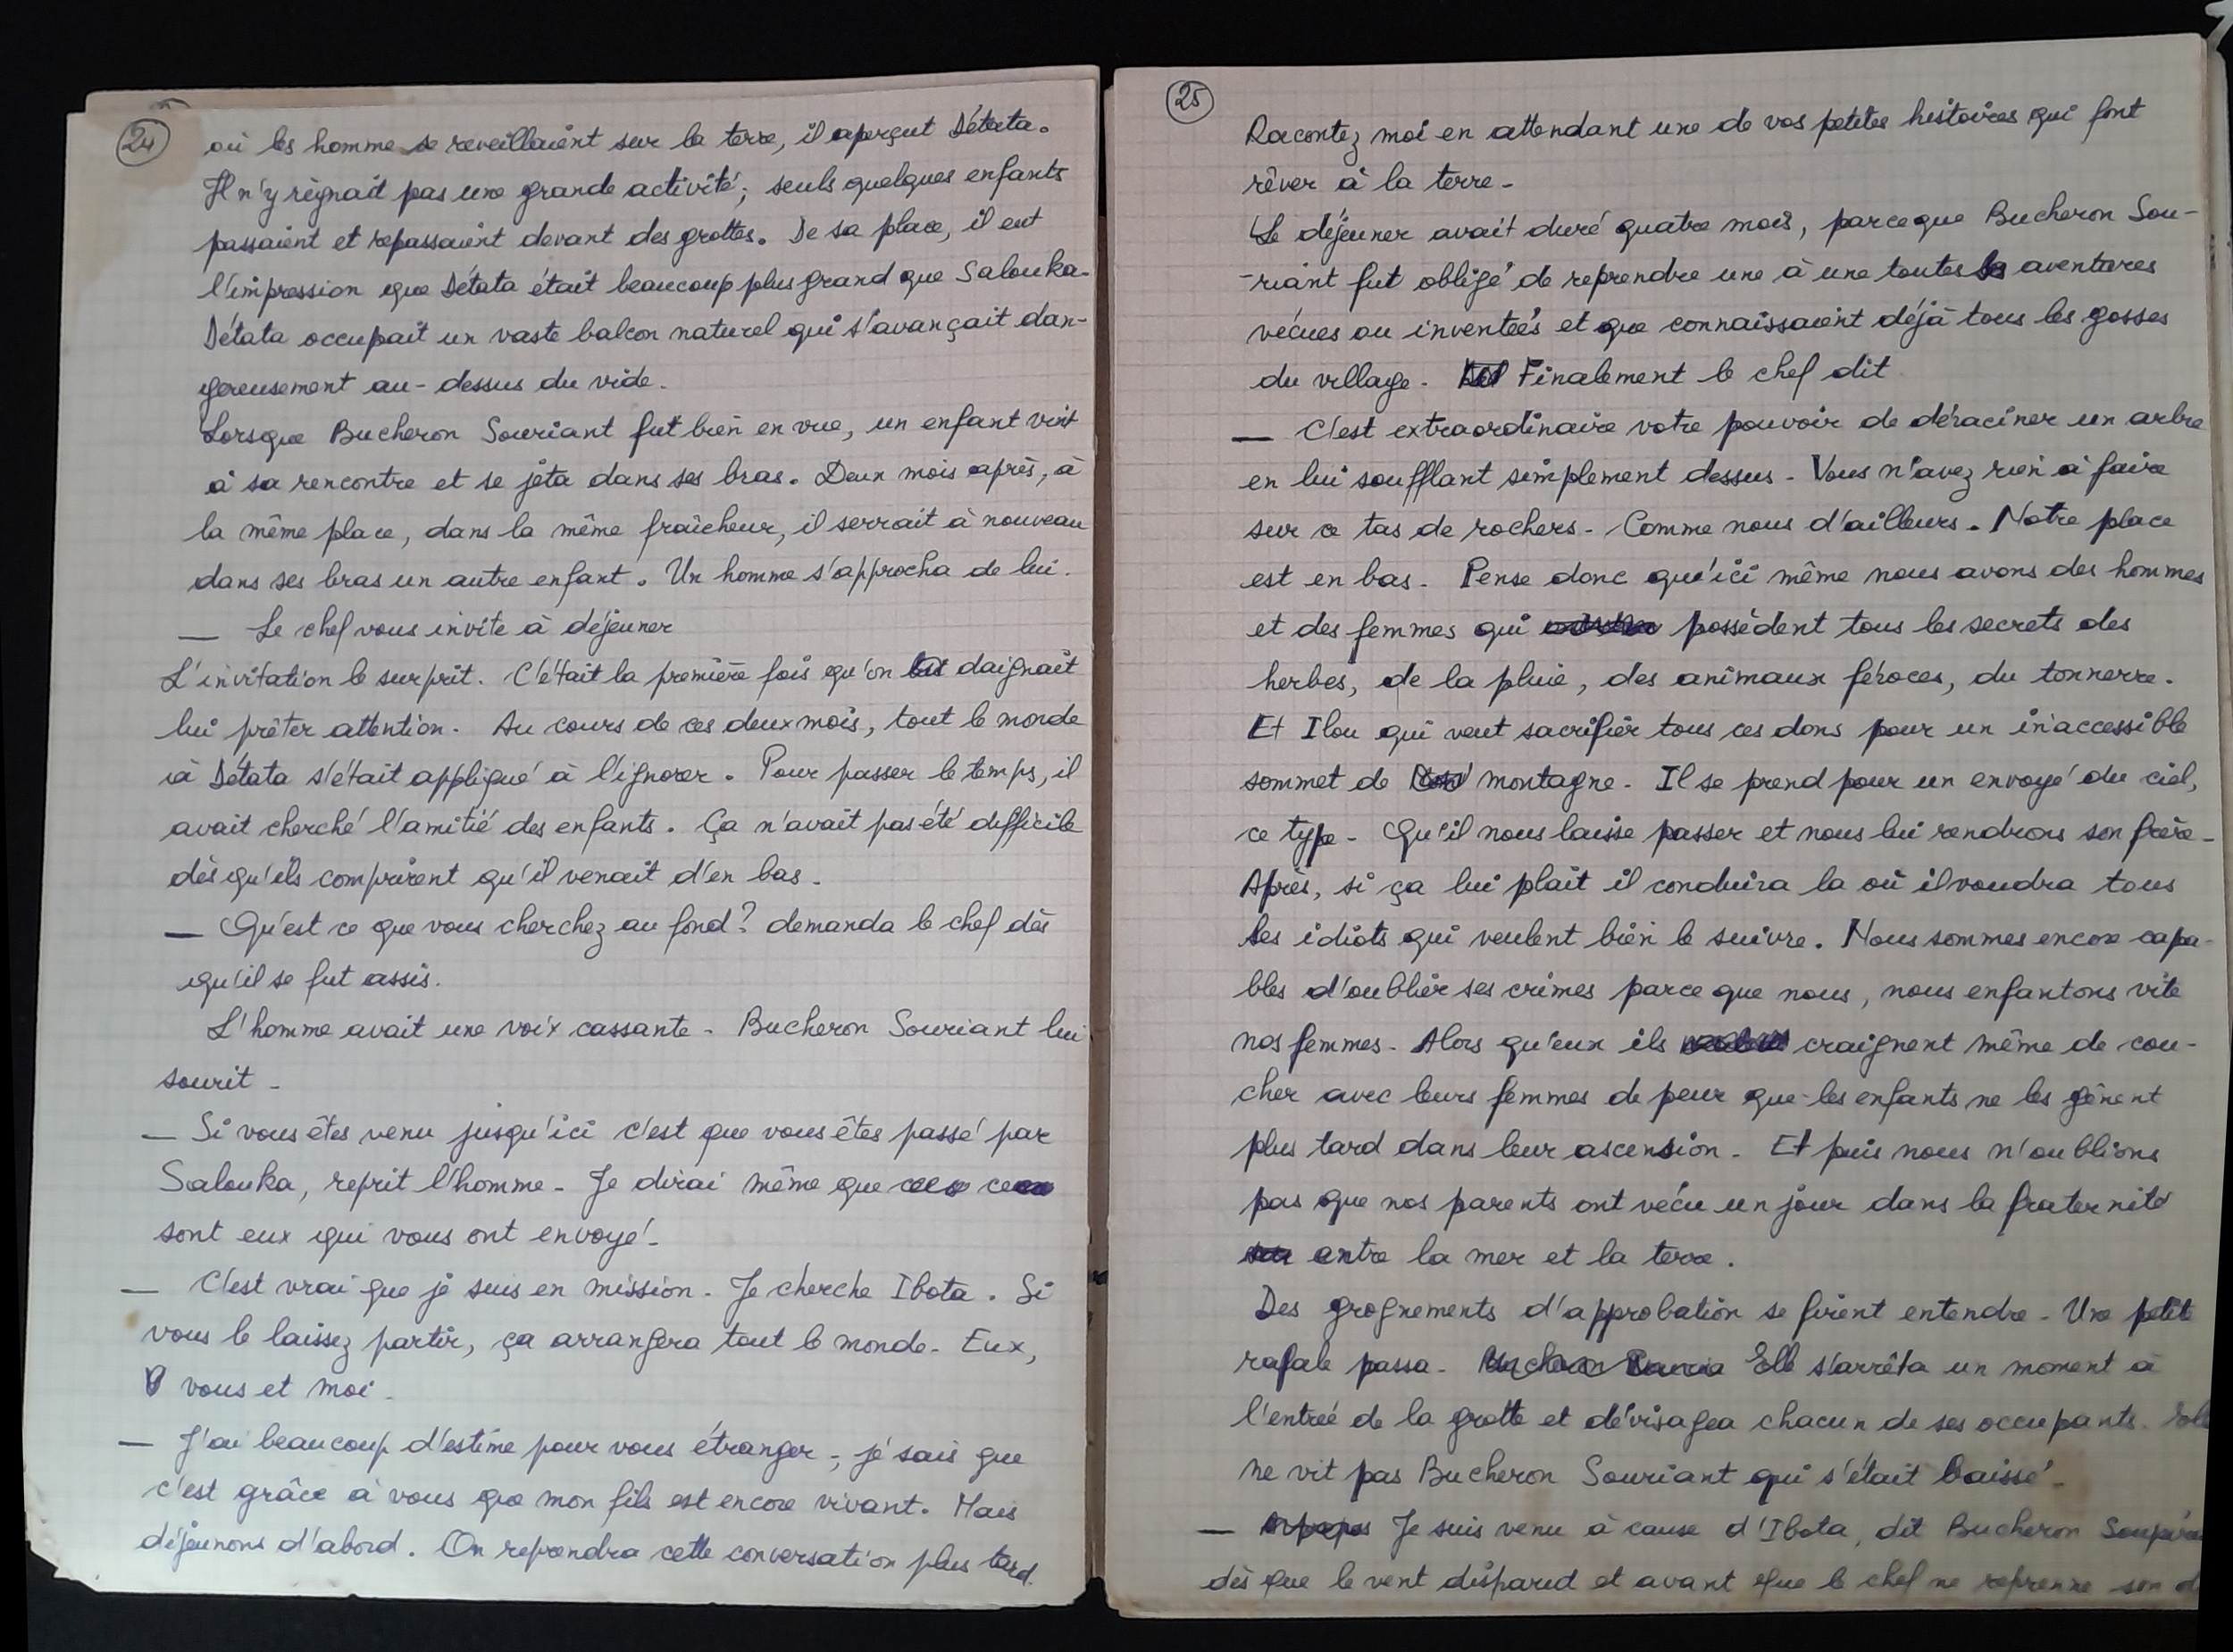 24
où les homme se reveillaient sur la terre, il aperçut Détata.
Il n'y règnait pas une grande activité; seuls quelques enfants
passaient et repassaient devant des grottes. De sa place, il eut
l'impression que Détata était beaucoup plus grand que Salouka.
Détata occupait un vaste balcon naturel qui s'avançait dan-
gereusement au-dessus du vide.
Lorsque Bucheron Souriant fut bien en vue, un enfant vint
à sa rencontre et se jeta dans ses bras. Deux mois après, à
la même place, dans la même fraîcheur, il serrait à nouveau
dans ses bras un autre enfant. Un homme s'approcha de lui.
— Le chef vous invite à déjeuner
L'invitation le surprit. C'était la première fois qu'on daignait
lui prêter attention. Au cours de ces deux mois, tout le monde
à Détata s'était appliqué à l'ignorer. Pour passer le temps, il
avait cherché l'amitié des enfants. Ça n'avait pas été difficile
dès qu'ils comprirent qu'il venait d'en bas.
— Qu'est ce que vous cherchez au fond? demanda le chef dès
qu'il se fut assis.
L'homme avait une voix cassante. Bucheron Souriant lui
sourit.
— Si vous êtes venu jusqu'ici c'est que vous êtes passé par
Salouka, reprit l'homme. Je dirai même que ce
sont eux qui vous ont envoyé.
— C'est vrai que je suis en mission. Je cherche Ibota. Si
vous le laissez partir, ça arrangera tout le monde. Eux,
vous et moi.
— J'ai beaucoup d'estime pour vous étranger; je sais que
c'est grâce à vous que mon fils est encore vivant. Mais
déjeunons d'abord. On reprendra cette conversation plus tard.
25
Racontez moi en attendant une de vos petites histoires qui font
rêver à la terre.
Le déjeuner avait duré quatre mois, parce que Bucheron Sou-
-riant fut obligé de reprendre une à une toutes les aventures
vécues ou inventées et que connaissaient déjà tous les gosses
du village. Finalement le chef dit
— C'est extraordinaire votre pouvoir de déraciner un arbre
en lui soufflant simplement dessus. Vous n'avez rien à faire
sur ce tas de rochers. Comme nous d'ailleurs. Notre place
est en bas. Pense donc qu'ici même nous avons des hommes
et des femmes qui possèdent tous les secrets des
herbes, de la pluie, des animaux féroces, du tonnerre.
Et Ilou qui veut sacrifier tous ces dons pour un inaccessible
sommet de montagne. Il se prend pour un envoyé du ciel,
ce type. Qu'il nous laisse passer et nous lui rendrons son frère.
Après, si ça lui plait il conduira la où il voudra tous
les idiots qui veulent bien le suivre. Nous sommes encore capa-
bles d'oublier ses crimes parce que nous, nous enfantons vite
nos femmes. Alors qu'eux ils craignent même de cou-
cher avec leurs femmes de peur que les enfants ne les gênent
plus tard dans leur ascension. Et puis nous n'oublions
pas que nos parents ont vécu un jour dans la fraternité
entre la mer et la terre.
Des grognements d'approbation se firent entendre. Une petite
rafale passa. Elle s'arrêta un moment à
l'entrée de la grotte et dévisagea chacun de ses occupants. Elle
ne vit pas Bucheron Souriant qui s'était baissé.
— Je suis venu à cause d'Ibota, dit Bucheron
dès que le vent disparut et avant que le chef ne reprenne son